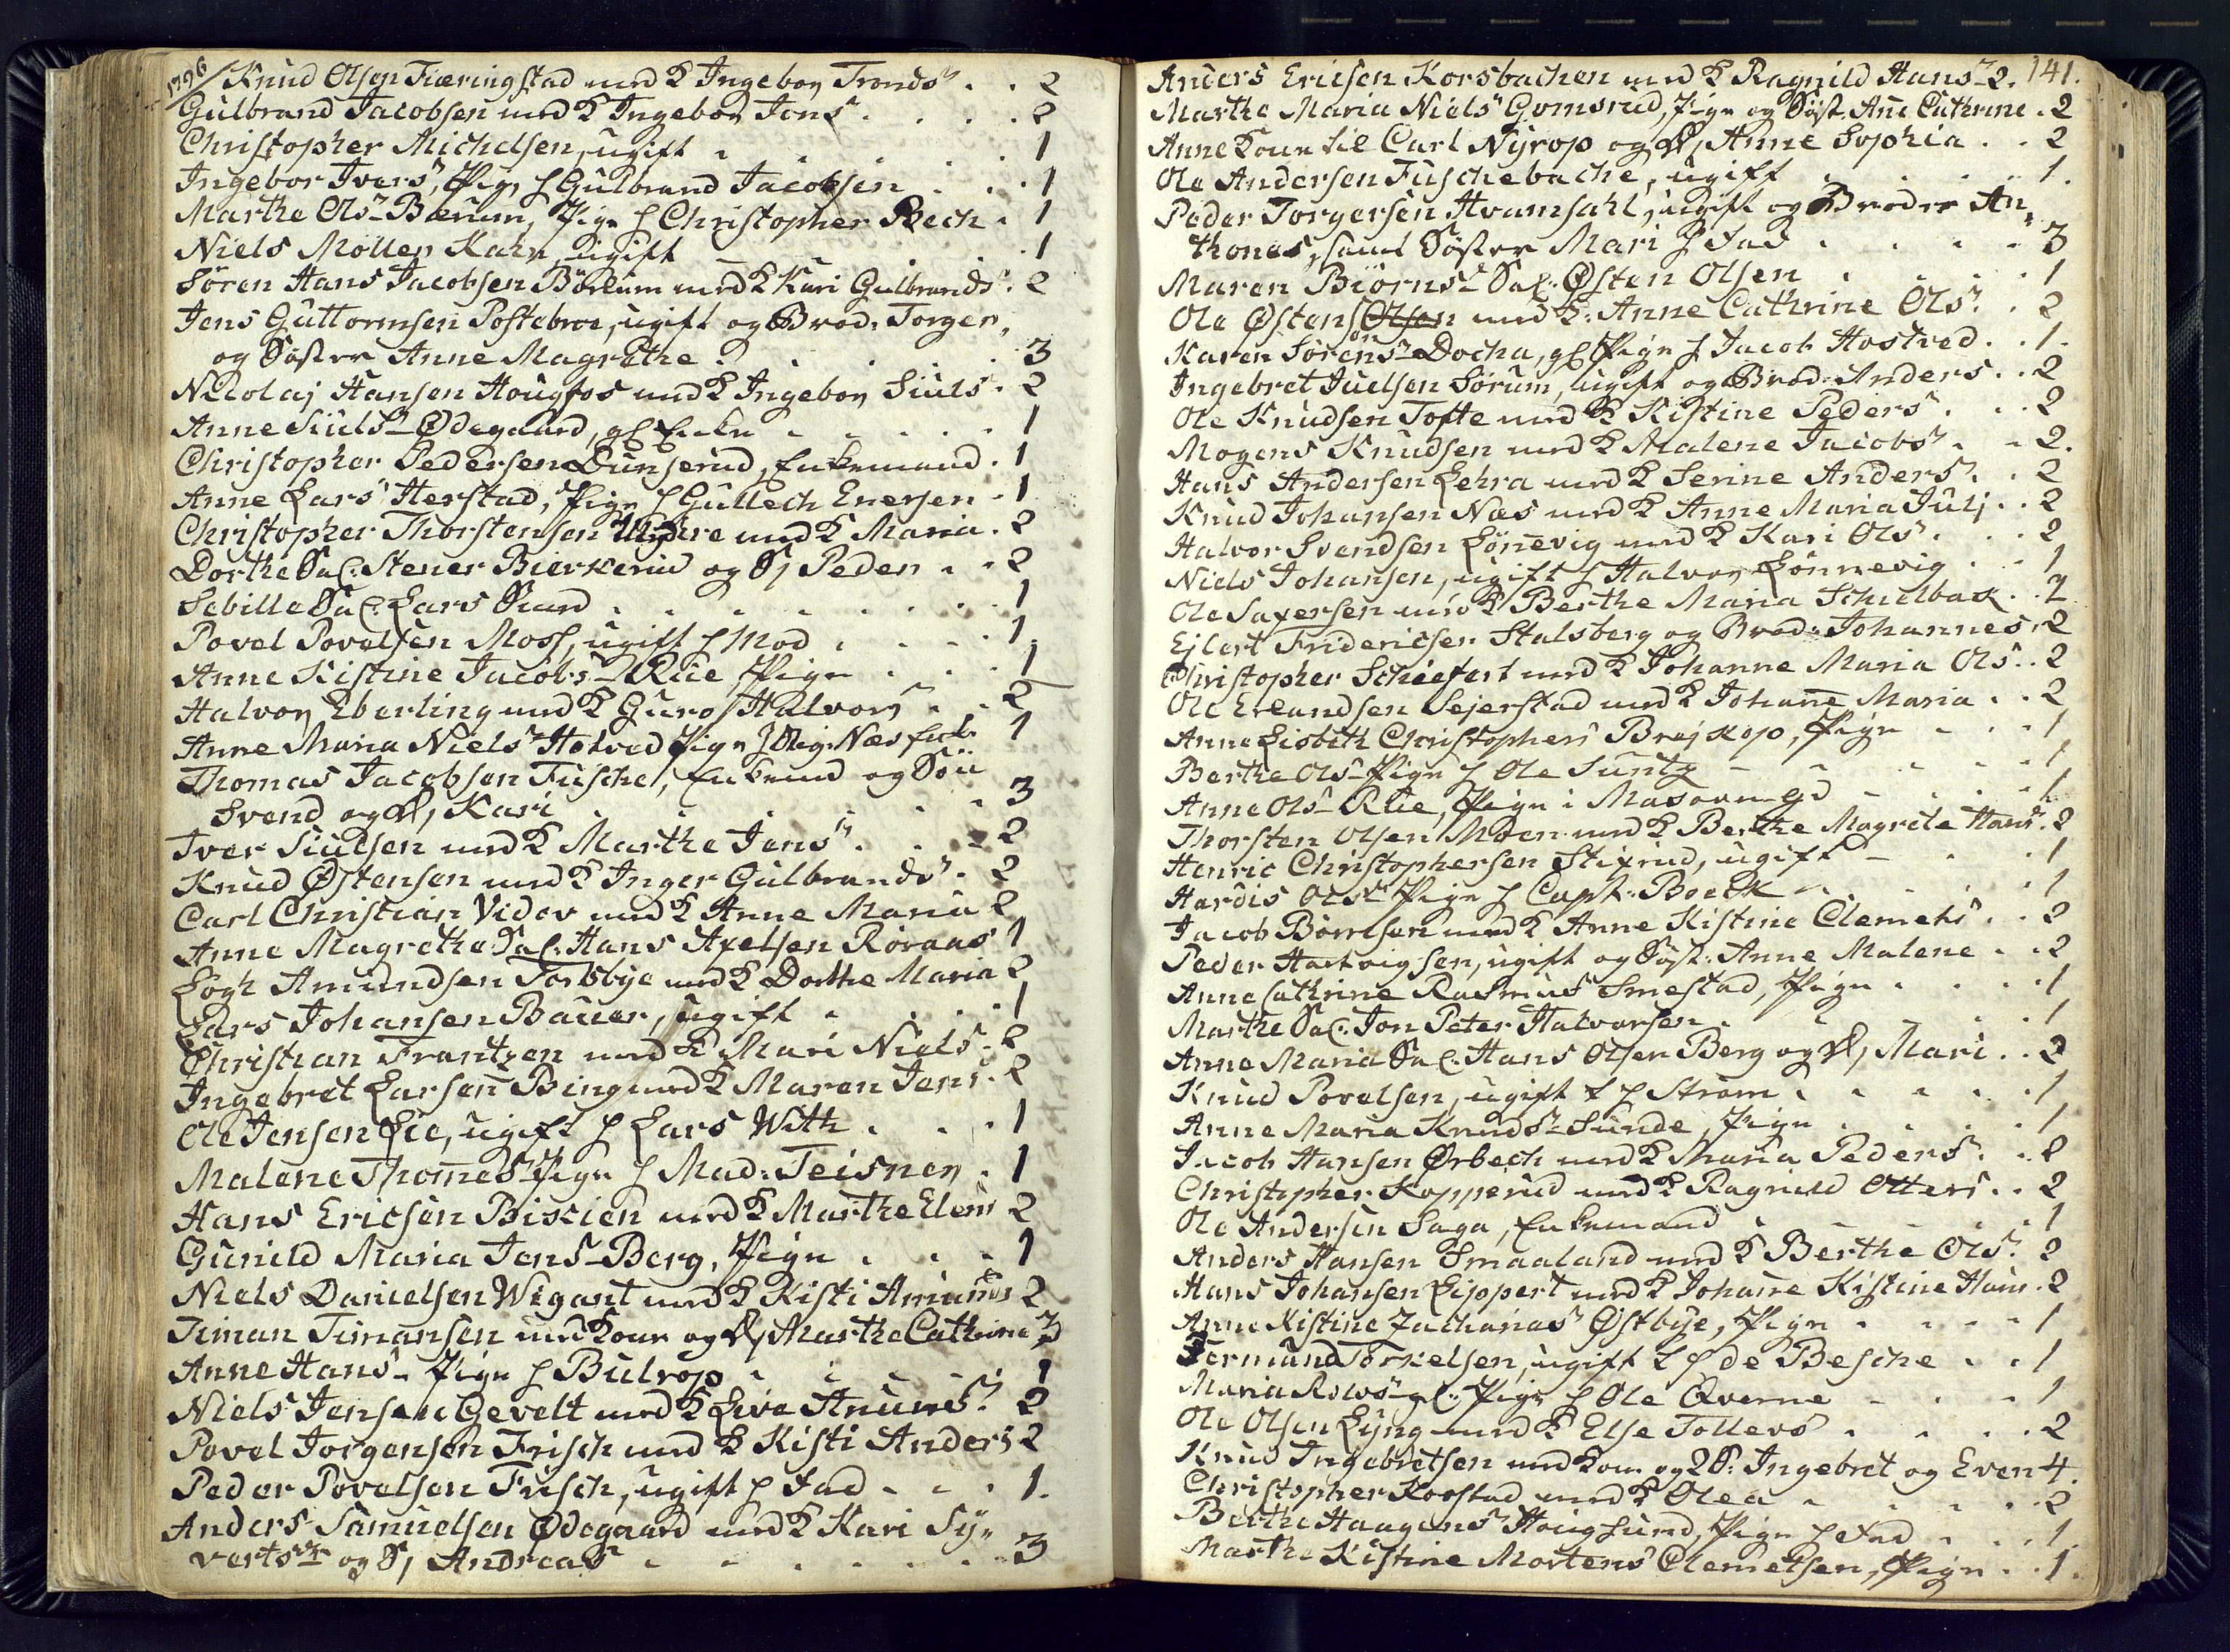 1796
Knud Olsen Fiæringstad med K Ingebor Tronds . . 2
Gulbrand Jacobsen med K Ingebor Jens . . . . 2
Christopher Michelsen, ugift . . . . 1
Ingebor Ivers, Pige h Gulbrand Jacobsen . . . 1
Marthe Ols Bærum, Pige h Christopher Bech . 1
Niels Møller Kahr, ugift . . 1
Søren Hans Jacobsen Børsum med K Kari Gulbrands . 2
Jens Guttormsen Postebroe, ugift og Brod. Torger,
og Søster Anne Magrethe . . . . . 3
Nicolaj Hansen Hougfos med K Ingebor Siuls . 2
Anne Siuls Ødegaard, gl Enke . . . . 1
Christopher Pedersen Dunserud, Enkemand . 1
Anne Lars Herstad, Pige h Gullech Enersen . 1
Christopher Thorstensen med K Maria . 2
Dorthe Sal. Stener Bierkerud og S, Peder . . 2
Sebille Sal. Lars Sand . . . . . . . 1
Povel Povelsen Moss, ugift h Mod . . . . 1
Anne Kistine Jacobs Rue Pige . . . 1
Halvor Eberling med K Guro Halvors . . 2
Anne Maria Niels Hotved Pige h Næs 1
Thomas Jacobsen Fusche, Enkemd og Søn
Svend og D, Kari . . . . . 3
Iver Siulsen med K Marthe Jens . . . 2
Knud Østensen med K Inger Gulbrands . 2
Carl Christian Vidov med K Anne Maria 2
Anne Magrethe Sal. Hans Axelsen Røraas 1
Amundsen Forsbye med K Dorthe Maria 2
Lars Johansen Bauer, ugift . . . 1
Christian Frantzen med K Mari Niels . 2
Ingebret Larsen Bing med K Maren Jens . 2
Ole Jensen Lie, ugift h Lars With . . . 1
Malene Thomes Pige h Mad: Teisner . 1
Hans Ericsen Biskien med K Marthe Elens 2
Gunild Maria Jens Berg, Pige . . . 1
Niels Danielsen Wigant med K Kisti Amunds 2
Timan Timansen med Kone og D, Marthe Cathrine 3
Anne Hans Pige h Bulrop . . . . 1
Niels Jensen Gevelt med K Live Amunds 2
Povel Jorgensen Frisch med K Kisti Anders 2
Peder Povelsen Frisch, ugift h Fad . . . 1.
Anders Samuelsen Ødegaard med K Kari Sy-
vertsr og S, Andreas . . . . . . 3
Anders Ericsen Korsbachen med K Ragnild Hans 2. 141.
Marthe Maria Niels Gomsrud, Pige og Søst. Ane Cathrine . 2
Anne Kone til Carl Nyrop og D, Anne Sophia . . 2
Ole Andersen Fuschebache, ugift . . . . 1.
Peder Torgersen Hvamsahl, ugift og Broder An-
thones, samt Søster Mari h Fad . . . . 3
Maren Biørns Sal. Østen Olsen . . . . 1
Ole Østensøn med K. Anne Cathrine Ols . . 2
Karen Sørens Docha, gl Pige h Jacob Hostved . . 1.
Ingebret Juelsen Sørum, ugift og Brod. Anders . . 2
Ole Knudsen Tofte med K Kistine Peders . . . 2
Mogens Knudsen med K Malene Jacobs . . 2.
Hans Andersen Lehra med K Serine Anders . . 2
Knud Johansen Næs med K Anne Maria Julj . . 2
Halvor Svendsen Lønnevig med K Kari Ols . . . 2
Niels Johansen, ugift h Halvor Lønnevig . . 1
Ole Saxersen med K Berthe Maria Schielbæk . . 2
Ejlert Fridericsen Stalsberg og Brod. Johannes . 2
Christopher Schiefert med K Johanne Maria Ols . . 2
Ole Erlandsen Sejerstad med K Johane Maria . . 2
Anne Lisbeth Christophers Brejskop, Pige . . . 1
Berthe Ols Pige h Ole Suntz . . . . 1
Anne Ols Rue, Pige i . . . . 1
Thorsten Olsen Moen med K Berthe Magrete Hans . 2
Henric Christophersen Stixrud, ugift . . . 1
Hardis Ols Pige h Capt. Boeck . . . . 1
Jacob Børresen med K Anne Kistine Clemets . . 2
Peder Hartvigsen, ugift og Søst. Anne Malene . . 2
Anne Cathrine Rasmus Smestad, Pige . . . . 1
Marthe Sal. Jon Peter Halvorsen . . . . 1
Anne Maria Sal. Hans Olsen Berg og D, Mari . . 2
Knud Povelsen, ugift h Strøm . . . . . 1
Anne Maria Knuds Sunde, Pige . . . . 1
Jacob Hansen Ørbech med K Maria Peders . . 2
Christopher Kopperud med K Ragnild Otters . . 2
Ole Andersen Saga, Enkemand . . . . 1
Anders Hansen Smaaland med K Berthe Ols . 2
Hans Johansen Lippert med K Johane Kistine Hans . 2
Anne Kistine Zacharias Østbye, Pige . . . . 1
Germund Torkelsen, ugift h de Besche . . 1
Maria Rolvs gl. Pige h Ole Qverne . . . 1
Ole Olsen Lyng med K Else Tollevs . . . . 2
Knud Ingebretsen med Kone og 2 S: Ingebret og Even 4.
Christopher Kopstad med K Olea . . . . . 2
Berthe Haagens Hougsund, Pige h Fad . . . 1.
Marthe Kistine Mortens Clemetsen, Pige . . 1.